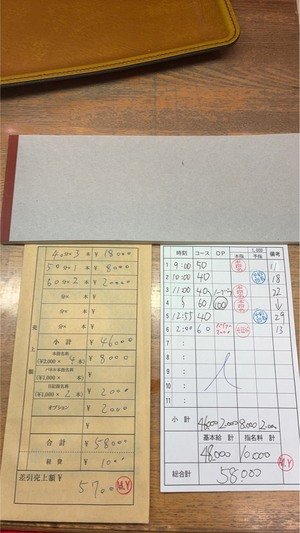 40分×3本 ¥18000
50分×1本 ¥8000
60分×2本 ¥20000
分× 本 ¥
分× 本 ¥
分× 本 ¥
売上額
小計 ¥46000
本指名料 (¥2,000× 4本) ¥8000
パネル本指名料 (¥1,000× 本) ¥
(¥1,000× 2本) ¥2000
オプション ¥2000
¥
合計 ¥58000
経費 ¥1000
差引売上額¥
57000
時刻 コース OP 本指 1,000 予指 備考
1 9:00 50 11
2 10:00 40 18
3 11:00 40 22
4 60
5 12:55 40 29
6 2:00 60 2000 13
7 :
8 :
9 :
10 :
11 :
小計 46000 2000 8000 2000
基本給 計 指名料 計
48000 10000
総合計 58000